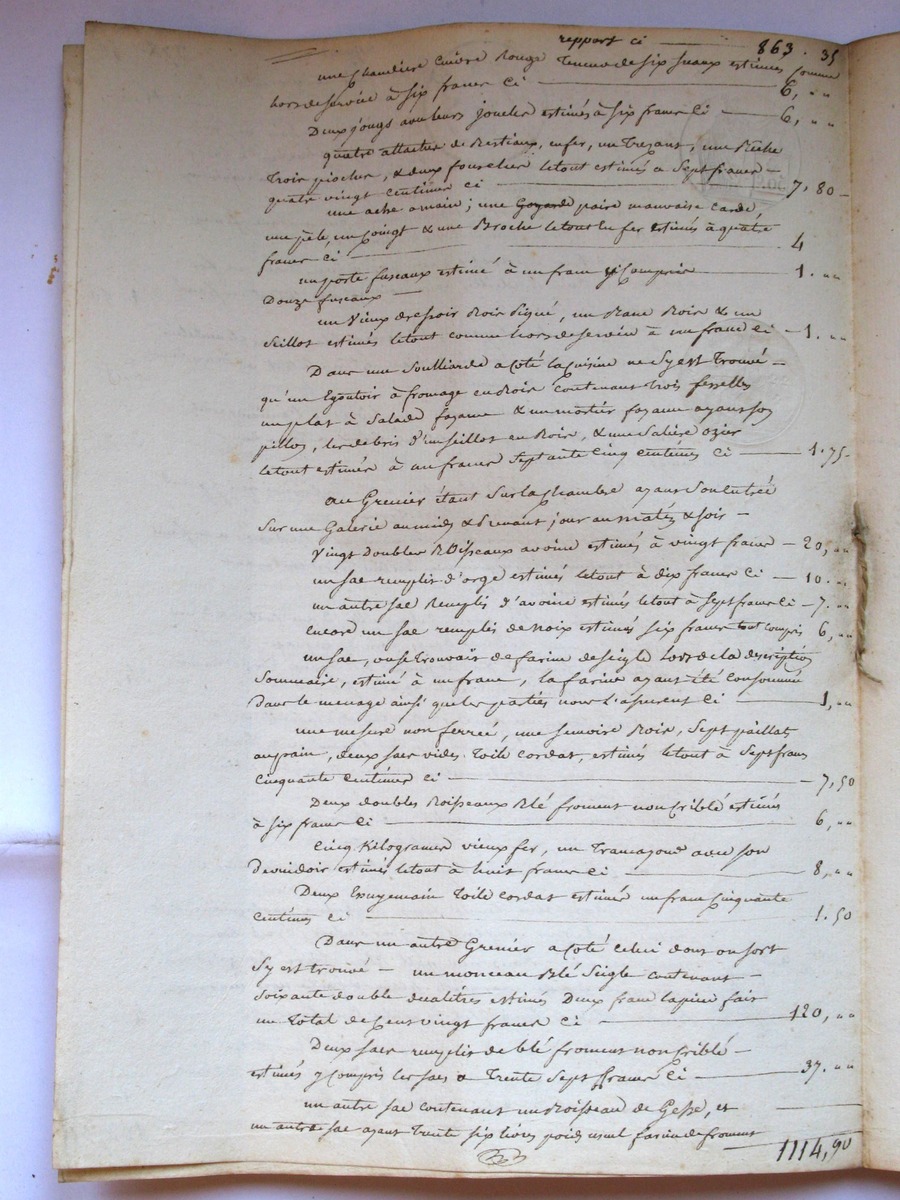 report ci — 863. 35
une Chaudière Cuivre Rouge Teneur de six seaux estimée comme
hors de service à six francs Ci — 6, ""
Deux jougs avec leurs joucles estimés à six francs Ci — 6, ""
quatre attaches de Bestiaux, en fer, un Trezant, une Bêche
Trois pioches, & deux fourches letout estimés a Sept francs —
quatre vingt Centimes ci — 7, 80 —
une ache a main; une Goyarde paire mauvaise carde,
une pèle, un Coingt & une Broche letout en fer estimés à quatre
francs Ci — 4
un porte fuseaux estimé à un franc y Compris — 1. ""
Douze fuseaux —
un Vieux dressoir Bois Piqué, un Banc Bois & un
Seillot estimés letout comme hors de service à un franc Ci — 1. ""
Dans une Soulliarde a Coté la Cuisine ne Sy est Trouvé —
qu'un Egoutoir à fromage en Bois Contenant trois fesselles
un plat à Salade fayance & un mortier fayance ayant son
pillon, les debris d'un Seillot en Bois, & une Salière ozier
letout estimés à un francs Septante Cinq Centimes Ci — 1. 75 —
au Grenier étant Sur la Chambre ayant Son entrée
Sur une Galerie au midy & prenant jour au matin & soir —
Vingt doubles Boisseaux avoine estimés à vingt francs — 20, ""
un sac remplis d'orge estimés letout à dix francs Ci — 10. ""
un autre sac Remplis d'avoine estimés letout à Sept francs Ci — 7. ""
encore un sac remplis de noix estimés six francs tout compris 6, ""
un sac, ou se trouvait de farine de seigle Lors de la description
Sommaire, estimé à un franc, la farine ayant été Consommée
Dans le menage ainsi que les parties nous l'assurent Ci — 1, ""
une mesure non ferrée, une semoire Bois, Sept paillats
au pain, deux sacs vides Toile Cordat, estimés letout à Sept francs
Cinquante Centimes Ci — 7, 50
Deux doubles Boisseaux Blé froment non Criblé estimés
à six francs Ci — 6, ""
Cinq Kilogrames vieux fer, un avec son
Devuidoir estimés letout à huit francs Ci — 8, ""
Deux Essuyemain Toile Cordat estimés un franc Cinquante
Centimes Ci — 1. 50
Dans un autre Grenier a Coté Celui dont on sort
Sy est trouvé — un monceau Blé Seigle Contenant —
Soixante double decalitres estimés Deux francs la piece fait
un Total de Cent vingt francs Ci — 120, ""
Deux sacs remplis de blé froment non Criblé —
estimés y Compris les sacs a Trente Sept francs Ci — 37. ""
un autre sac Contenant un Boisseau de Gesse, et
un autre sac ayant Trente six livres poids usuel farine de froment
1114, 90